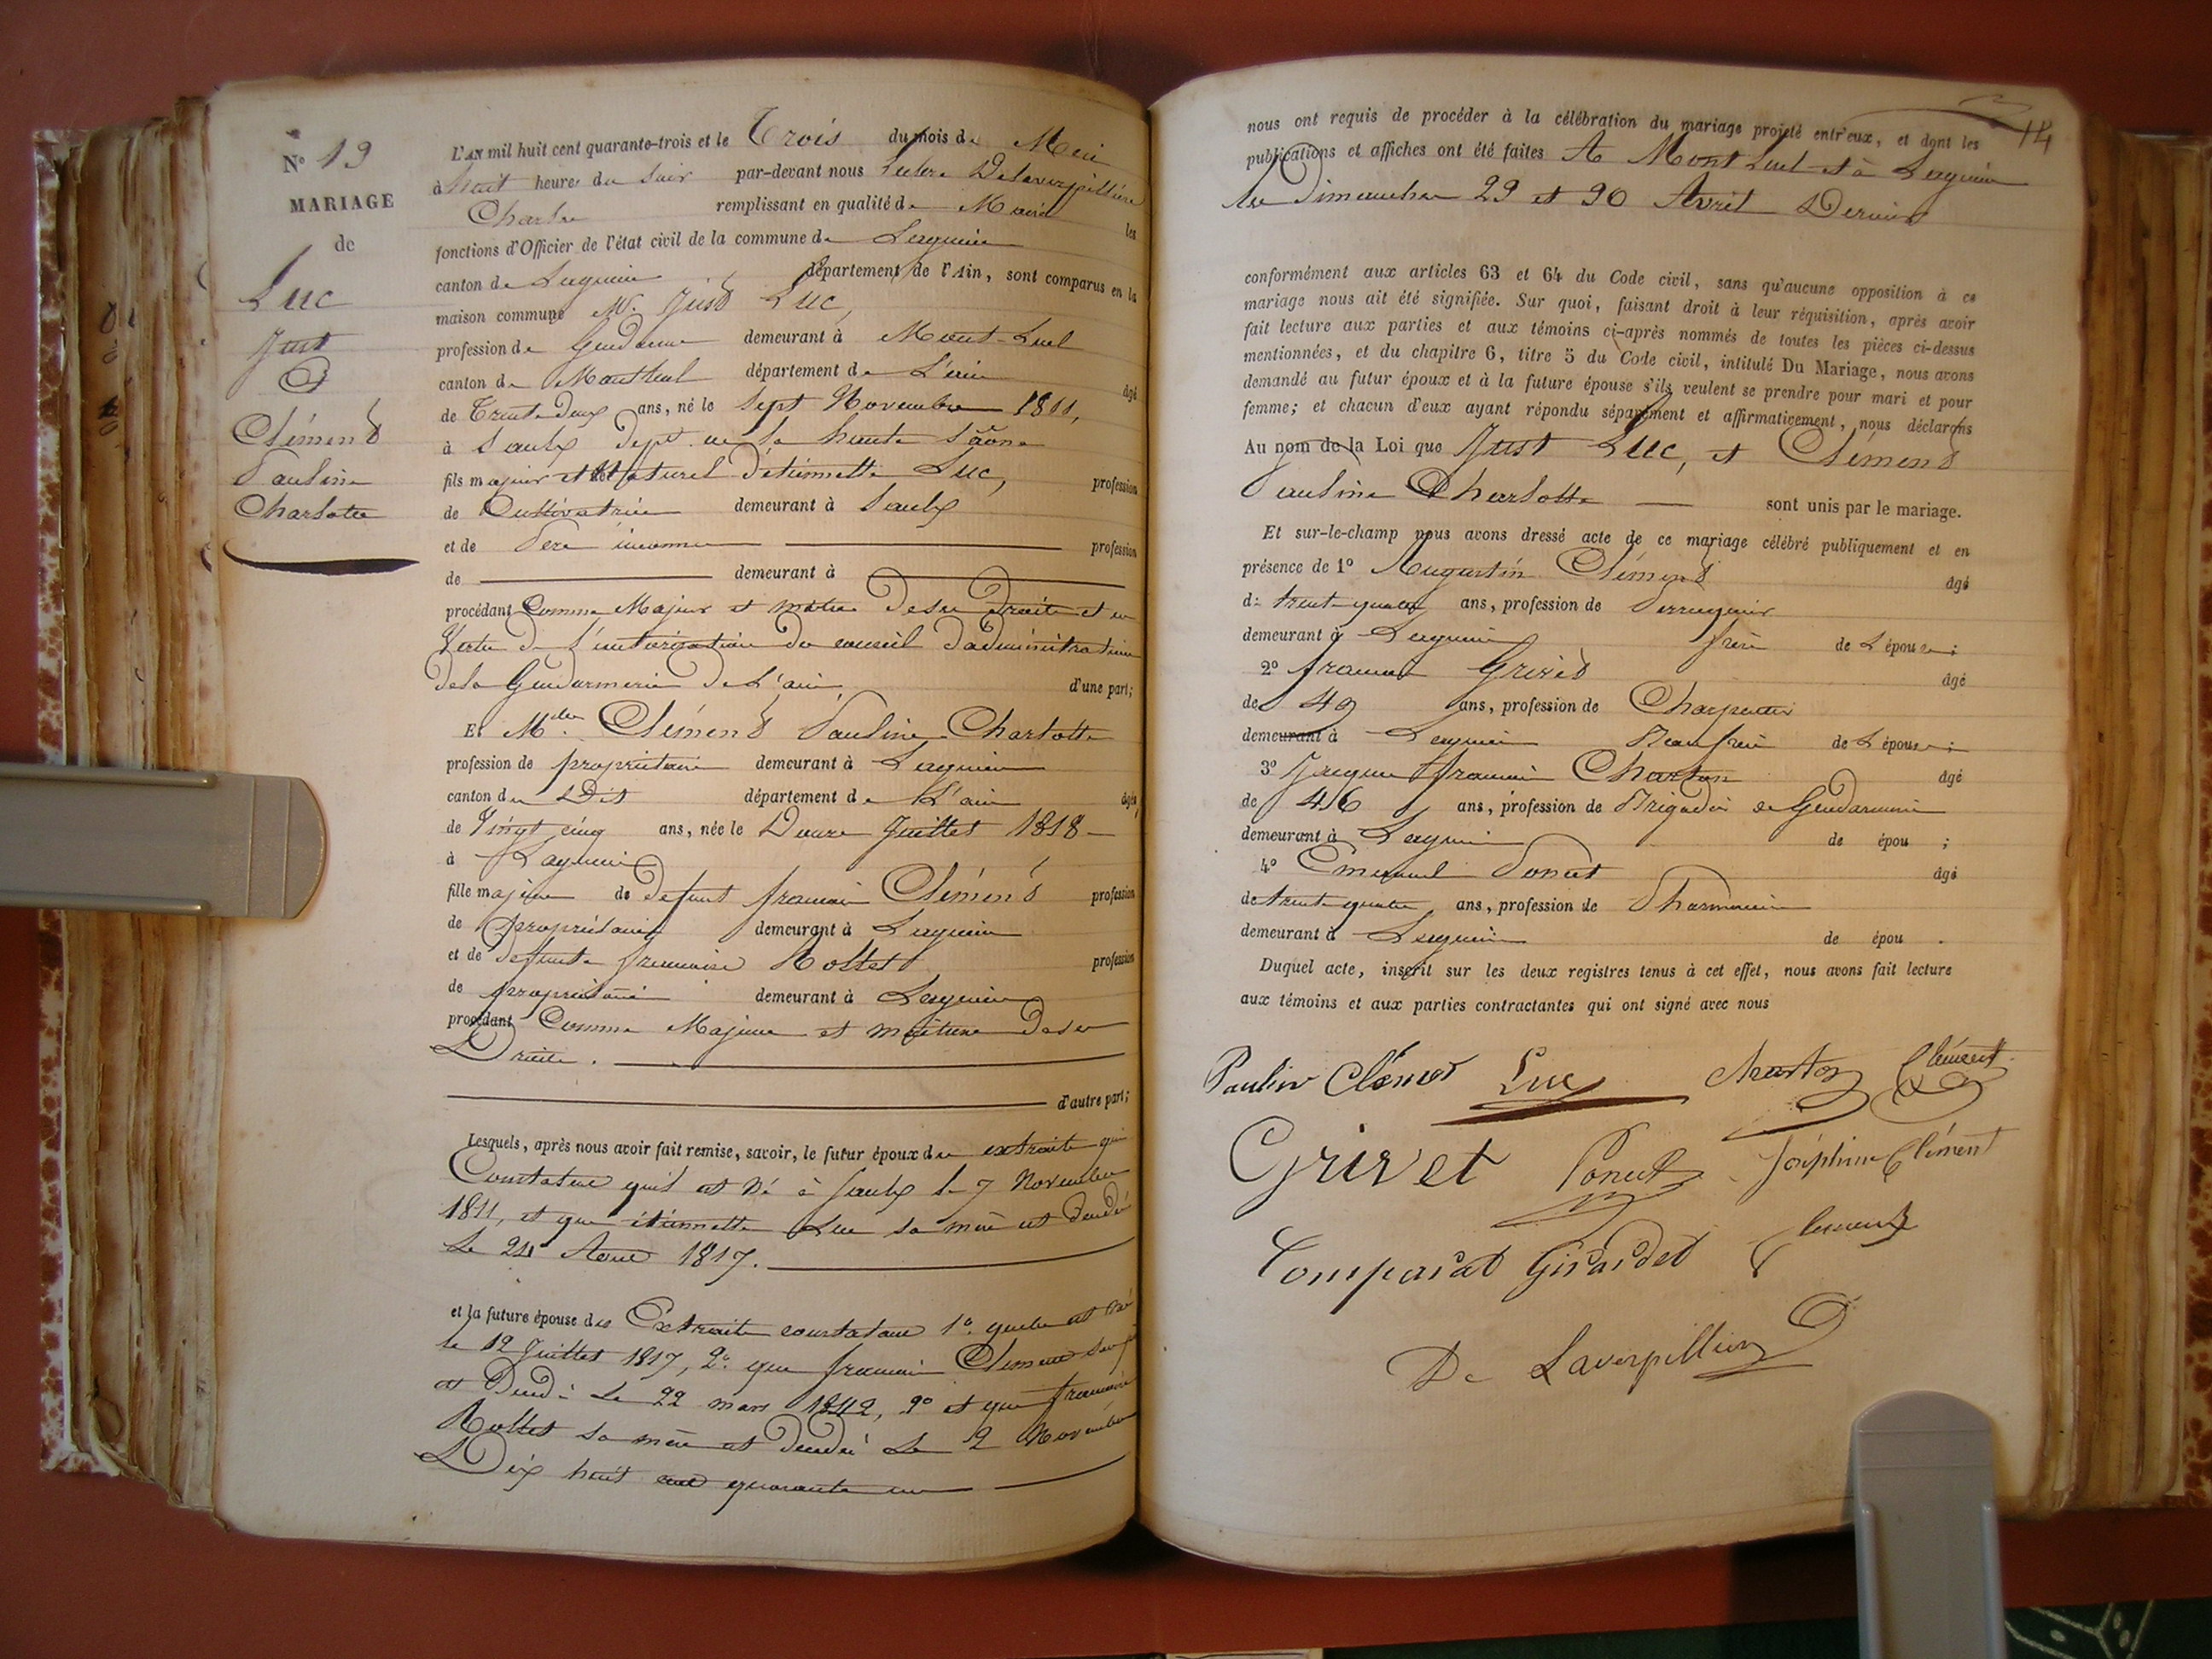 N° 19
MARIAGE
de
Luc
Just
&
Clément
Pauline
Charlotte
L'AN mil huit cent quarante-trois et le Trois du mois de Mai
à huit heures du Soir par-devant nous Delaverpillière
Charles remplissant en qualité de Maire les
fonctions d'Officier de l'état civil de la commune de Lagnieu
canton de Lagnieu département de l'Ain, sont comparus en la
maison commune M. Just Luc,
profession de Gendarme demeurant à Mont-Luel
canton de Montluel département de L'ain âgé
de Trente deux ans, né le Sept Novembre 1811,
à Saulx dépt de la haute Saône
fils majeur et Naturel d'étiennette Luc, profession
de Cultivatrice demeurant à Saulx
et de Père inconnu profession
de demeurant à
procédant Comme Majeur et maître de ses Droits et en
Vertu de l'autorisation du conseil d'administration
de la Gendarmerie de L'ain d'une part;
Et Mdlle Clément Pauline Charlotte
profession de propriétaire demeurant à Lagnieu
canton du Dit département de L'ain âgée
de Vingt cinq ans, née le Douze Juillet 1818
à Lagnieu
fille majeure de Défunt francois Clément profession
de propriétaire demeurant à Lagnieu
et de Défunte francoise Rollet profession
de propriétaire demeurant à Lagnieu
procédant Comme Majeure et maitresse de ses
Droits.
d'autre part;
Lesquels, après nous avoir fait remise, savoir, le futur époux des extraits qui
Constatent quil est né à Saulx le 7 Novembre
1811, et que étiennette Luc sa mère est décédée
le 24 Aout 1817.
et la future épouse des Extraits constatant 1° quelle est née
le 12 Juillet 1817, 2° que francois Clément son père
est décédé le 22 mars 1842, 3° et que francoise
Rollet sa mère est décédée le 2 Novembre
Dix huit cent quarante un
14
nous ont requis de procéder à la célébration du mariage projeté entr'eux, et dont les
publications et affiches ont été faites A Mont Luel et à Lagnieu
les Dimanches 23 et 30 Avril Dernier
conformément aux articles 63 et 64 du Code civil, sans qu'aucune opposition à ce
mariage nous ait été signifiée. Sur quoi, faisant droit à leur réquisition, après avoir
fait lecture aux parties et aux témoins ci-après nommés de toutes les pièces ci-dessus
mentionnées, et du chapitre 6, titre 5 du Code civil, intitulé Du Mariage, nous avons
demandé au futur époux et à la future épouse s'ils veulent se prendre pour mari et pour
femme; et chacun d'eux ayant répondu séparément et affirmativement, nous déclarons
Au nom de la Loi que Just Luc, et Clément
Pauline Charlotte sont unis par le mariage.
Et sur-le-champ nous avons dressé acte de ce mariage célébré publiquement et en
présence de 1° Augustin Clément âgé
de trente quatre ans, profession de Perruquier
demeurant à Lagnieu frère de L'épouse;
2° francois Grivet âgé
de 49 ans, profession de Charpentier
demeurant à Lagnieu Beau frère de L'épouse;
3° Jacques francois Charton âgé
de 46 ans, profession de Brigadier de Gendarmerie
demeurant à Lagnieu de épou ;
4° Emanuel Poncet âgé
de trente quatre ans, profession de Pharmacien
demeurant à Lagnieu de épou .
Duquel acte, inscrit sur les deux registres tenus à cet effet, nous avons fait lecture
aux témoins et aux parties contractantes qui ont signé avec nous
Pauline Clément Luc Charton Clément
Grivet Poncet Joséphine Clément
Comparat Girardet Clement
De Laverpillière